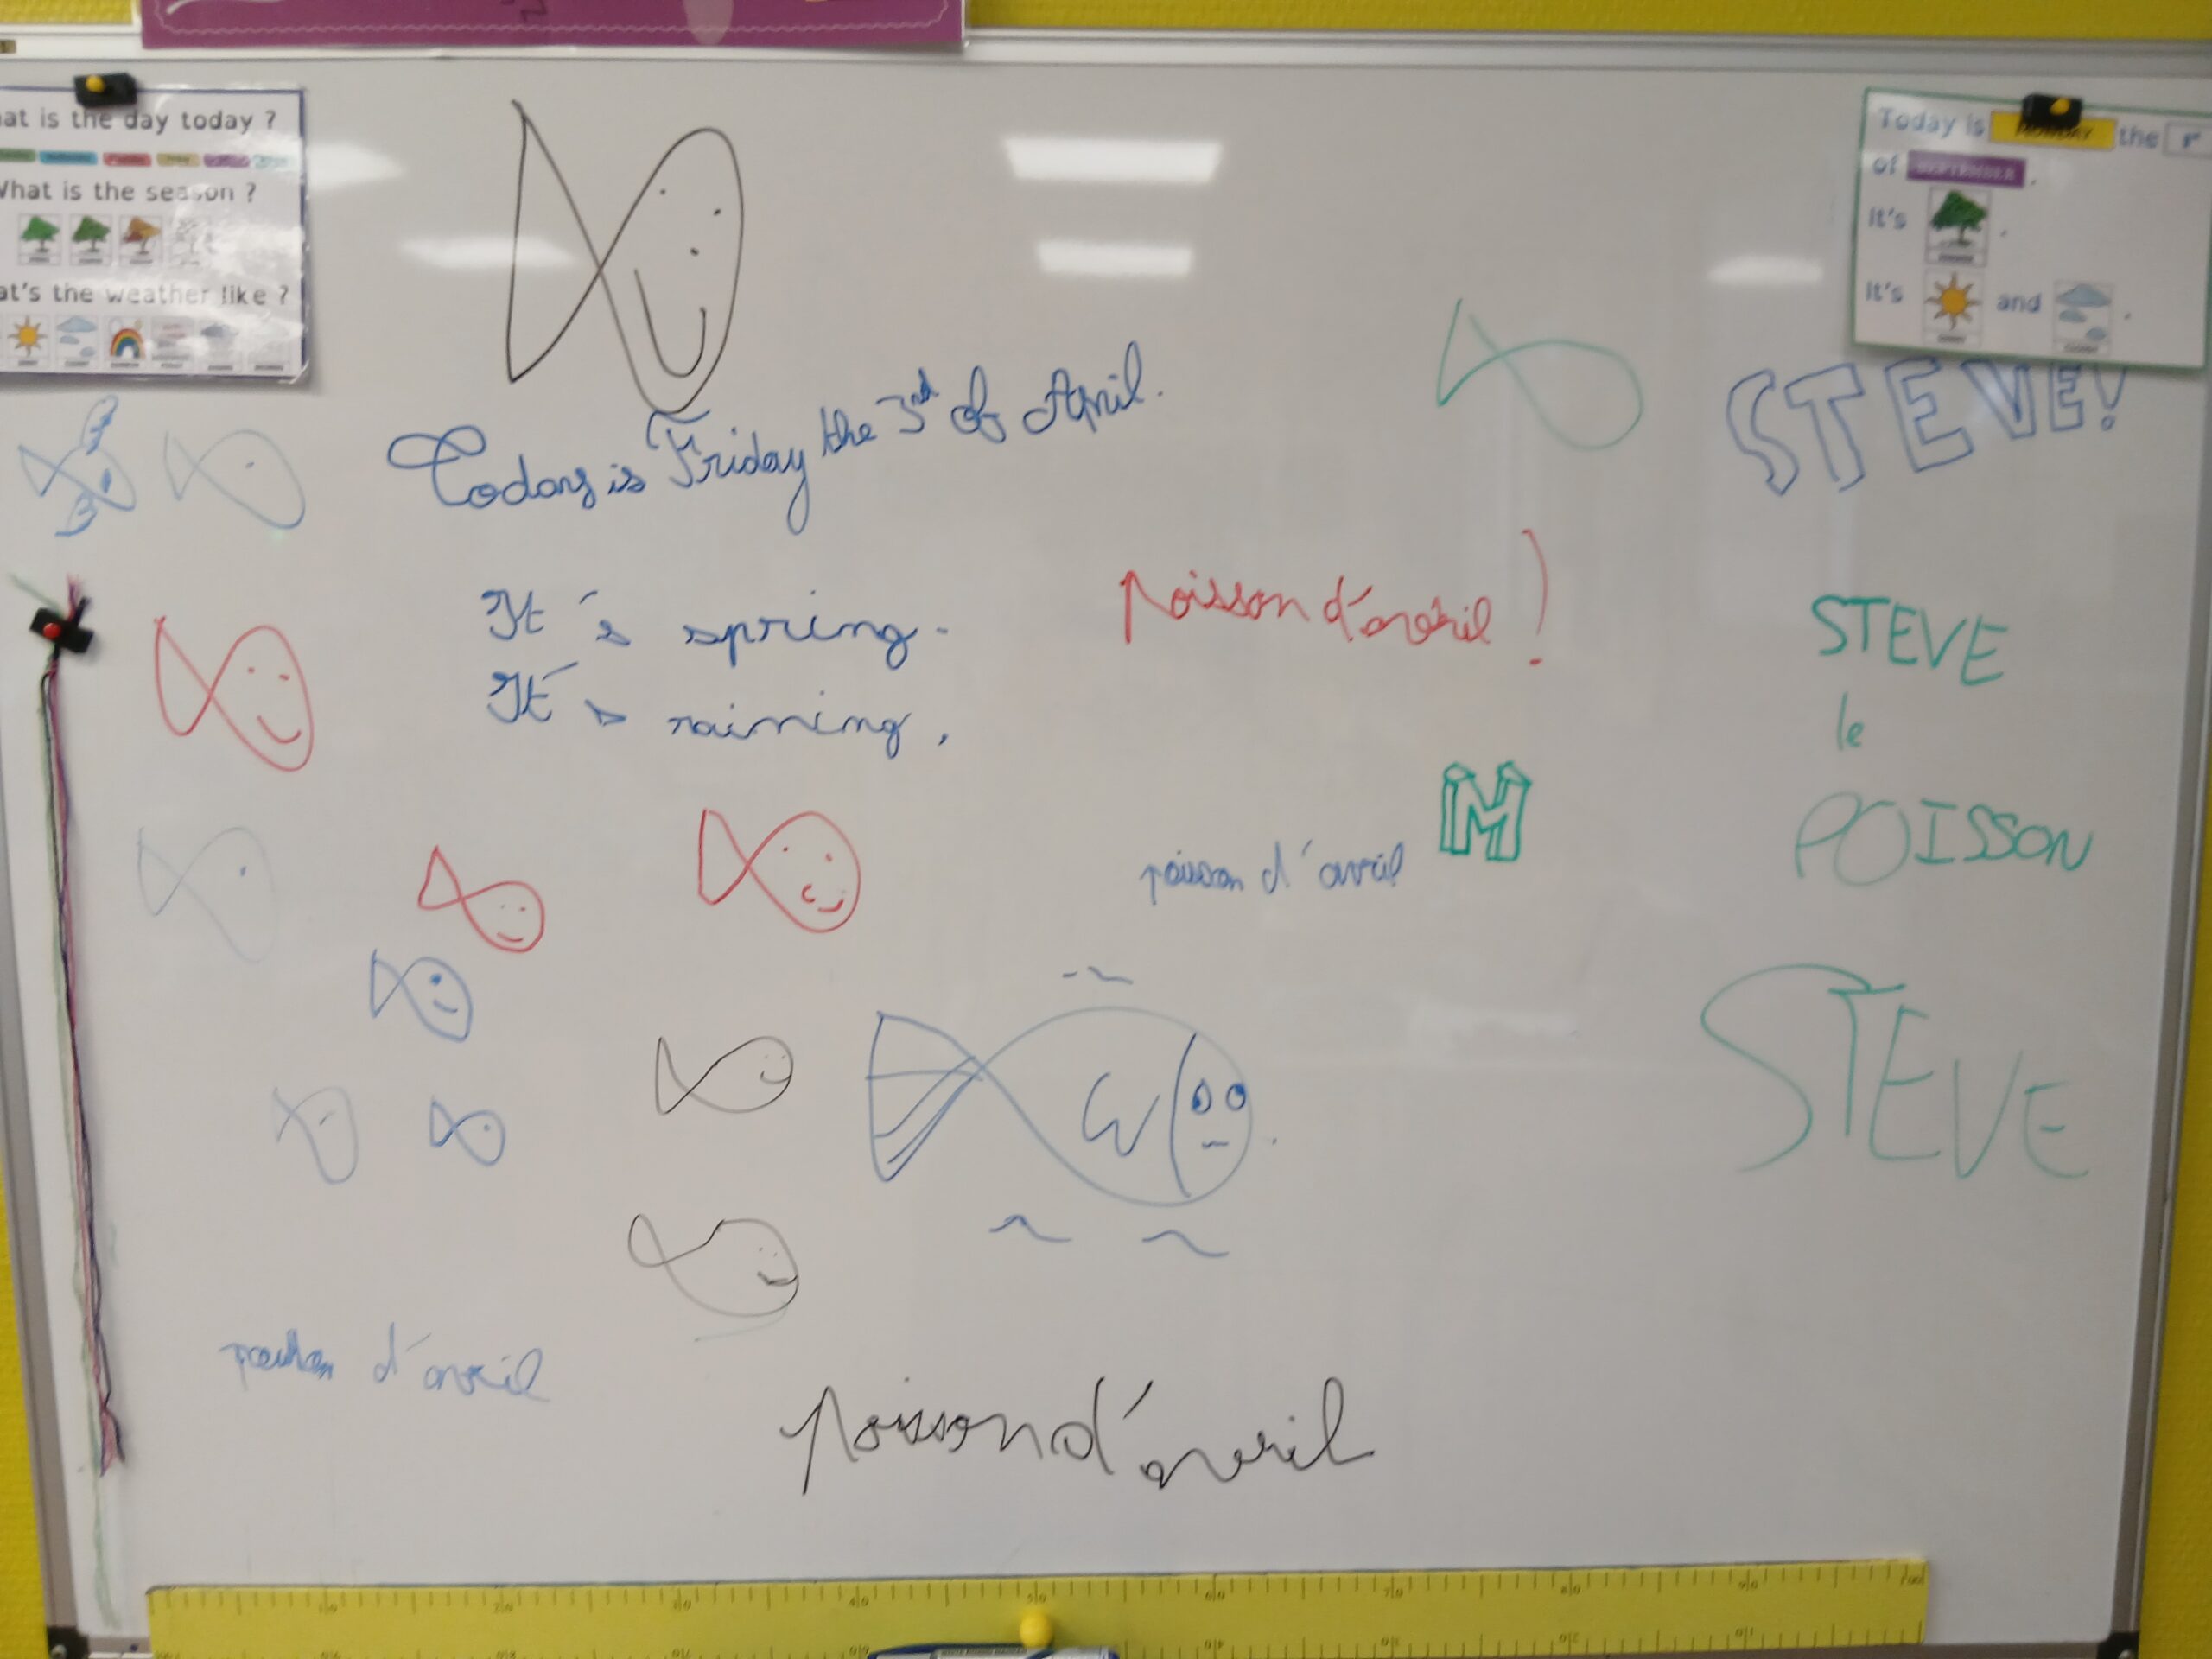 at is the day today ?
What is the season ?
at's the weather like ?
Today is MONDAY the 1st
of SEPTEMBER .
It's .
It's and .
Today is Friday the 3rd of April.
STEVE!
It's spring.
It's raining.
poisson d'avril !
STEVE
le
POISSON
M
poisson d'avril
W
STEVE
d'avril
poisson d'avril